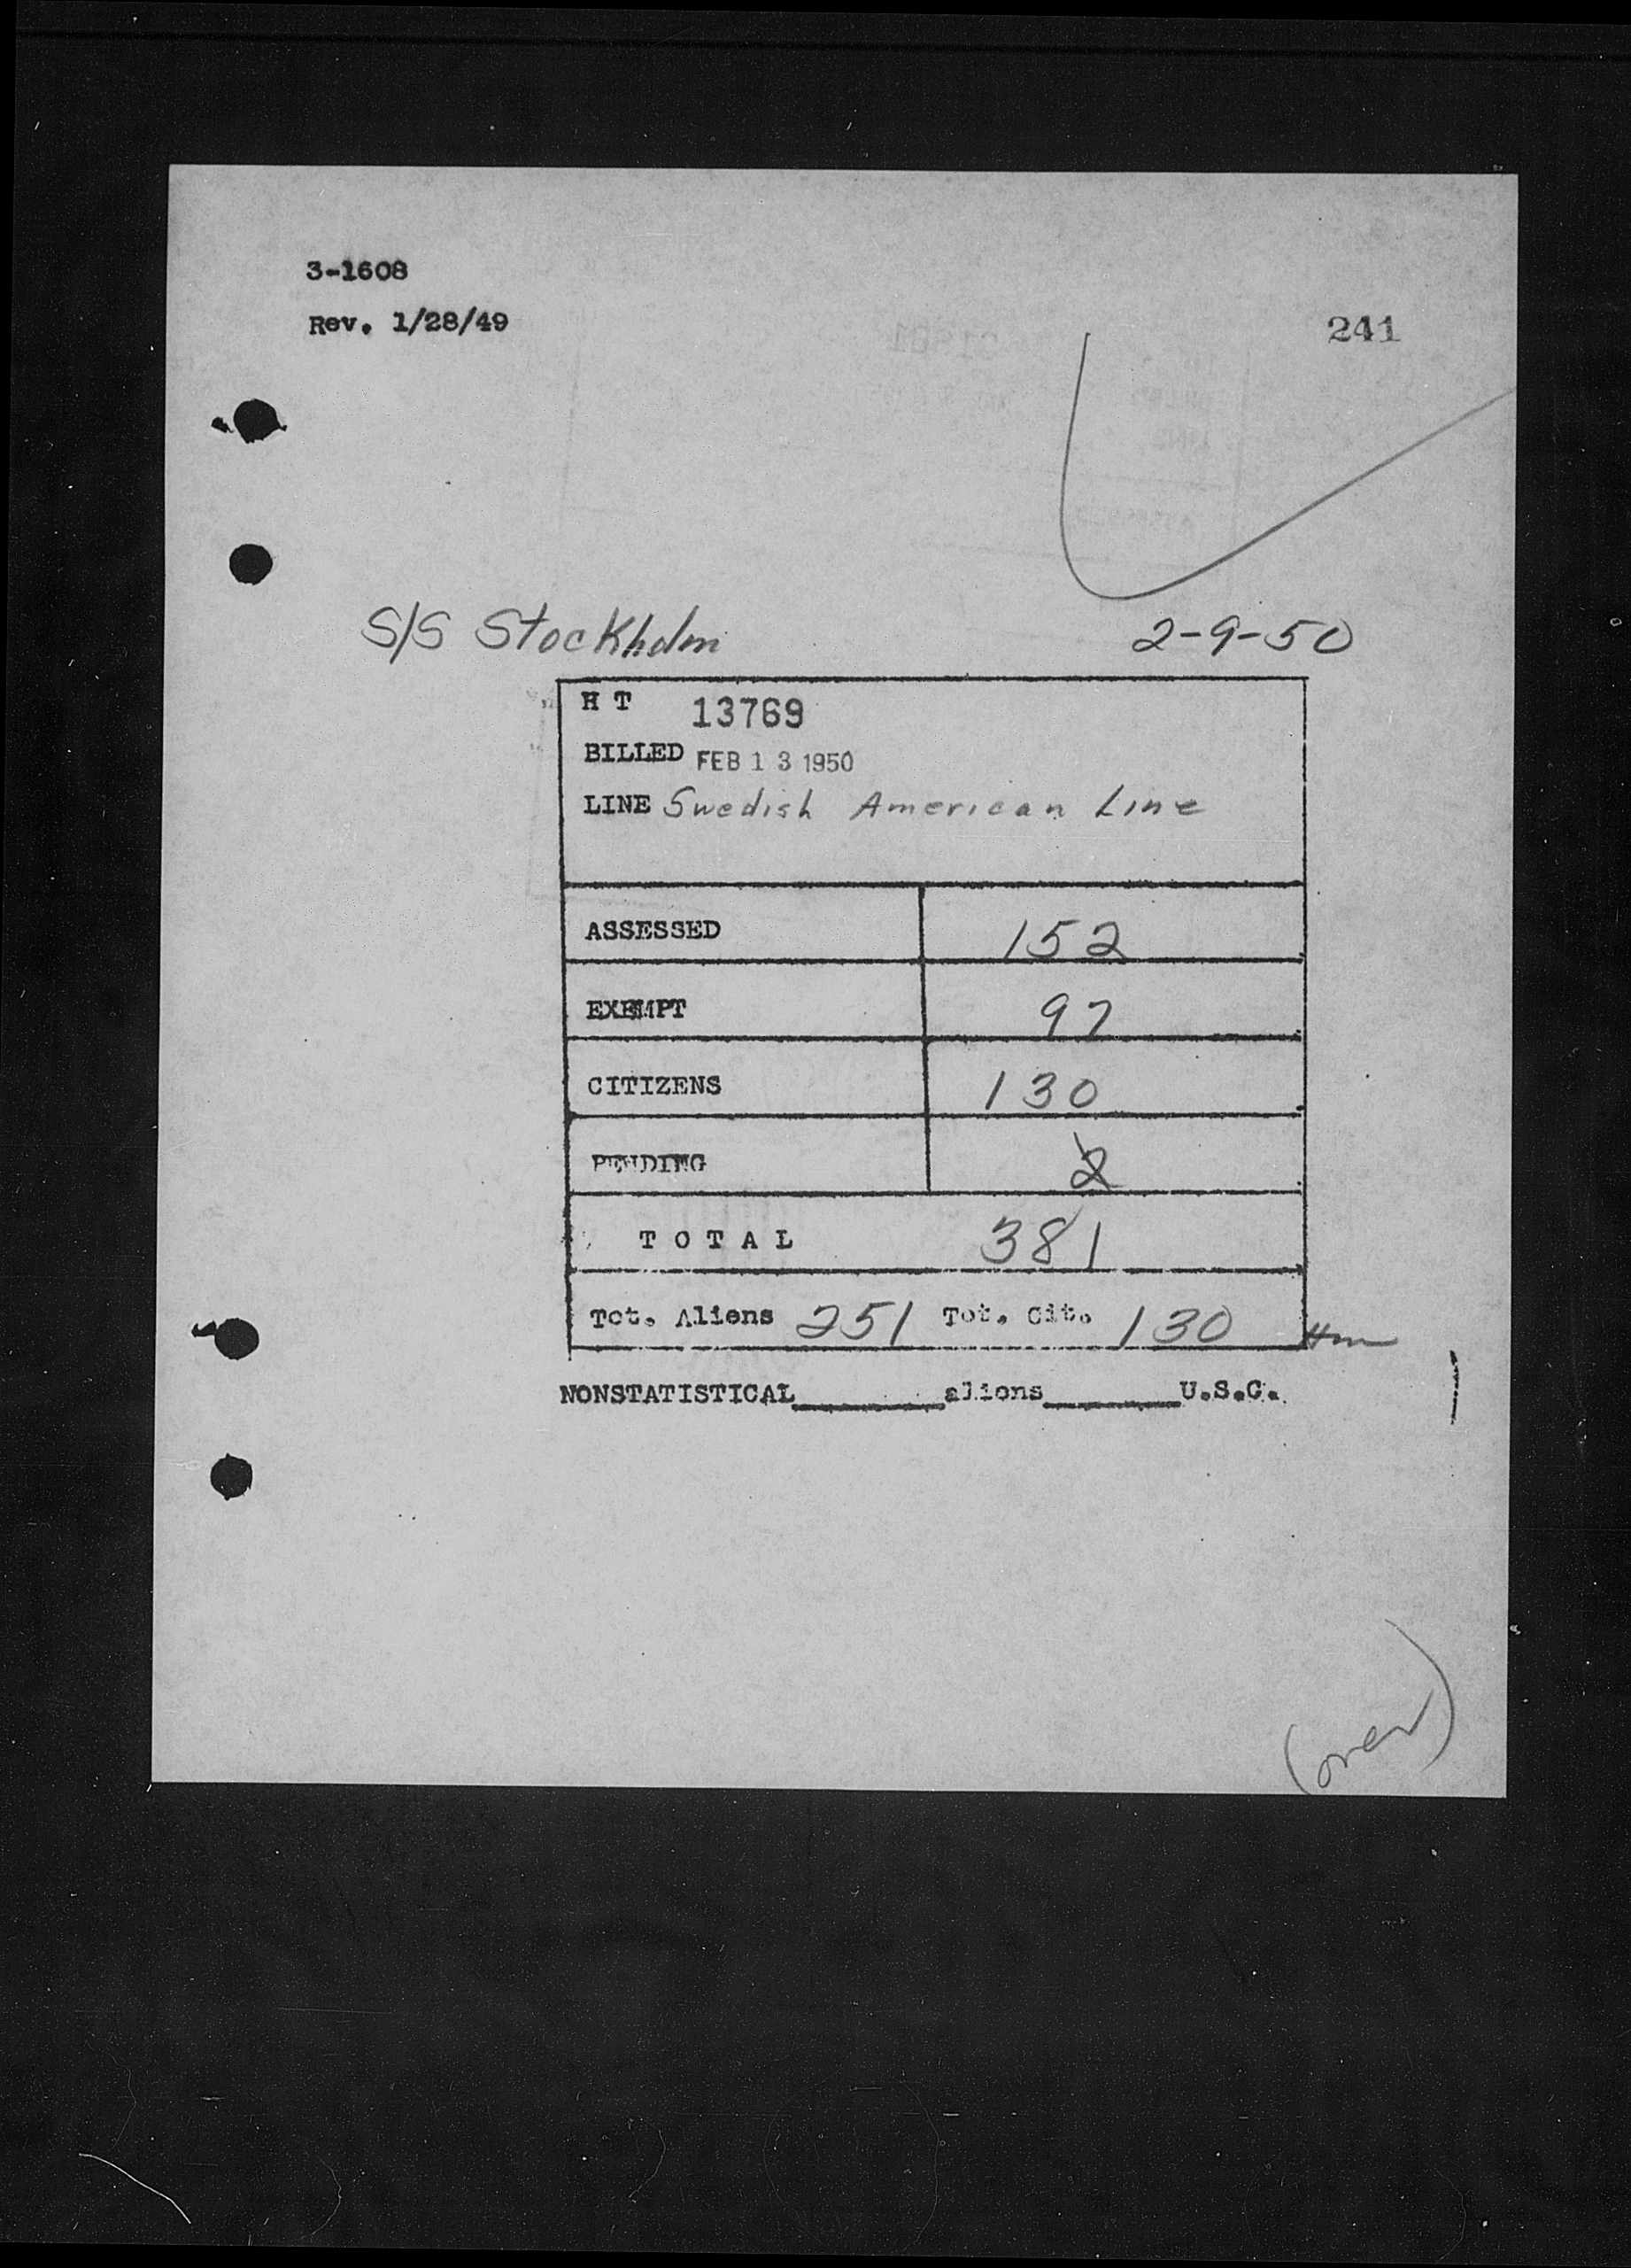 3-1608
Rev. 1/28/49
241
S/S Stockholm 2-9-50
H T 13769
BILLED FEB 13 1950
LINE Swedish American Line
ASSESSED 152
EXEMPT 97
CITIZENS 130
PENDING 2
TOTAL 381
Tot. Aliens 251 Tot. Cit. 130
NONSTATISTICAL________aliens________U.S.C.
(over)